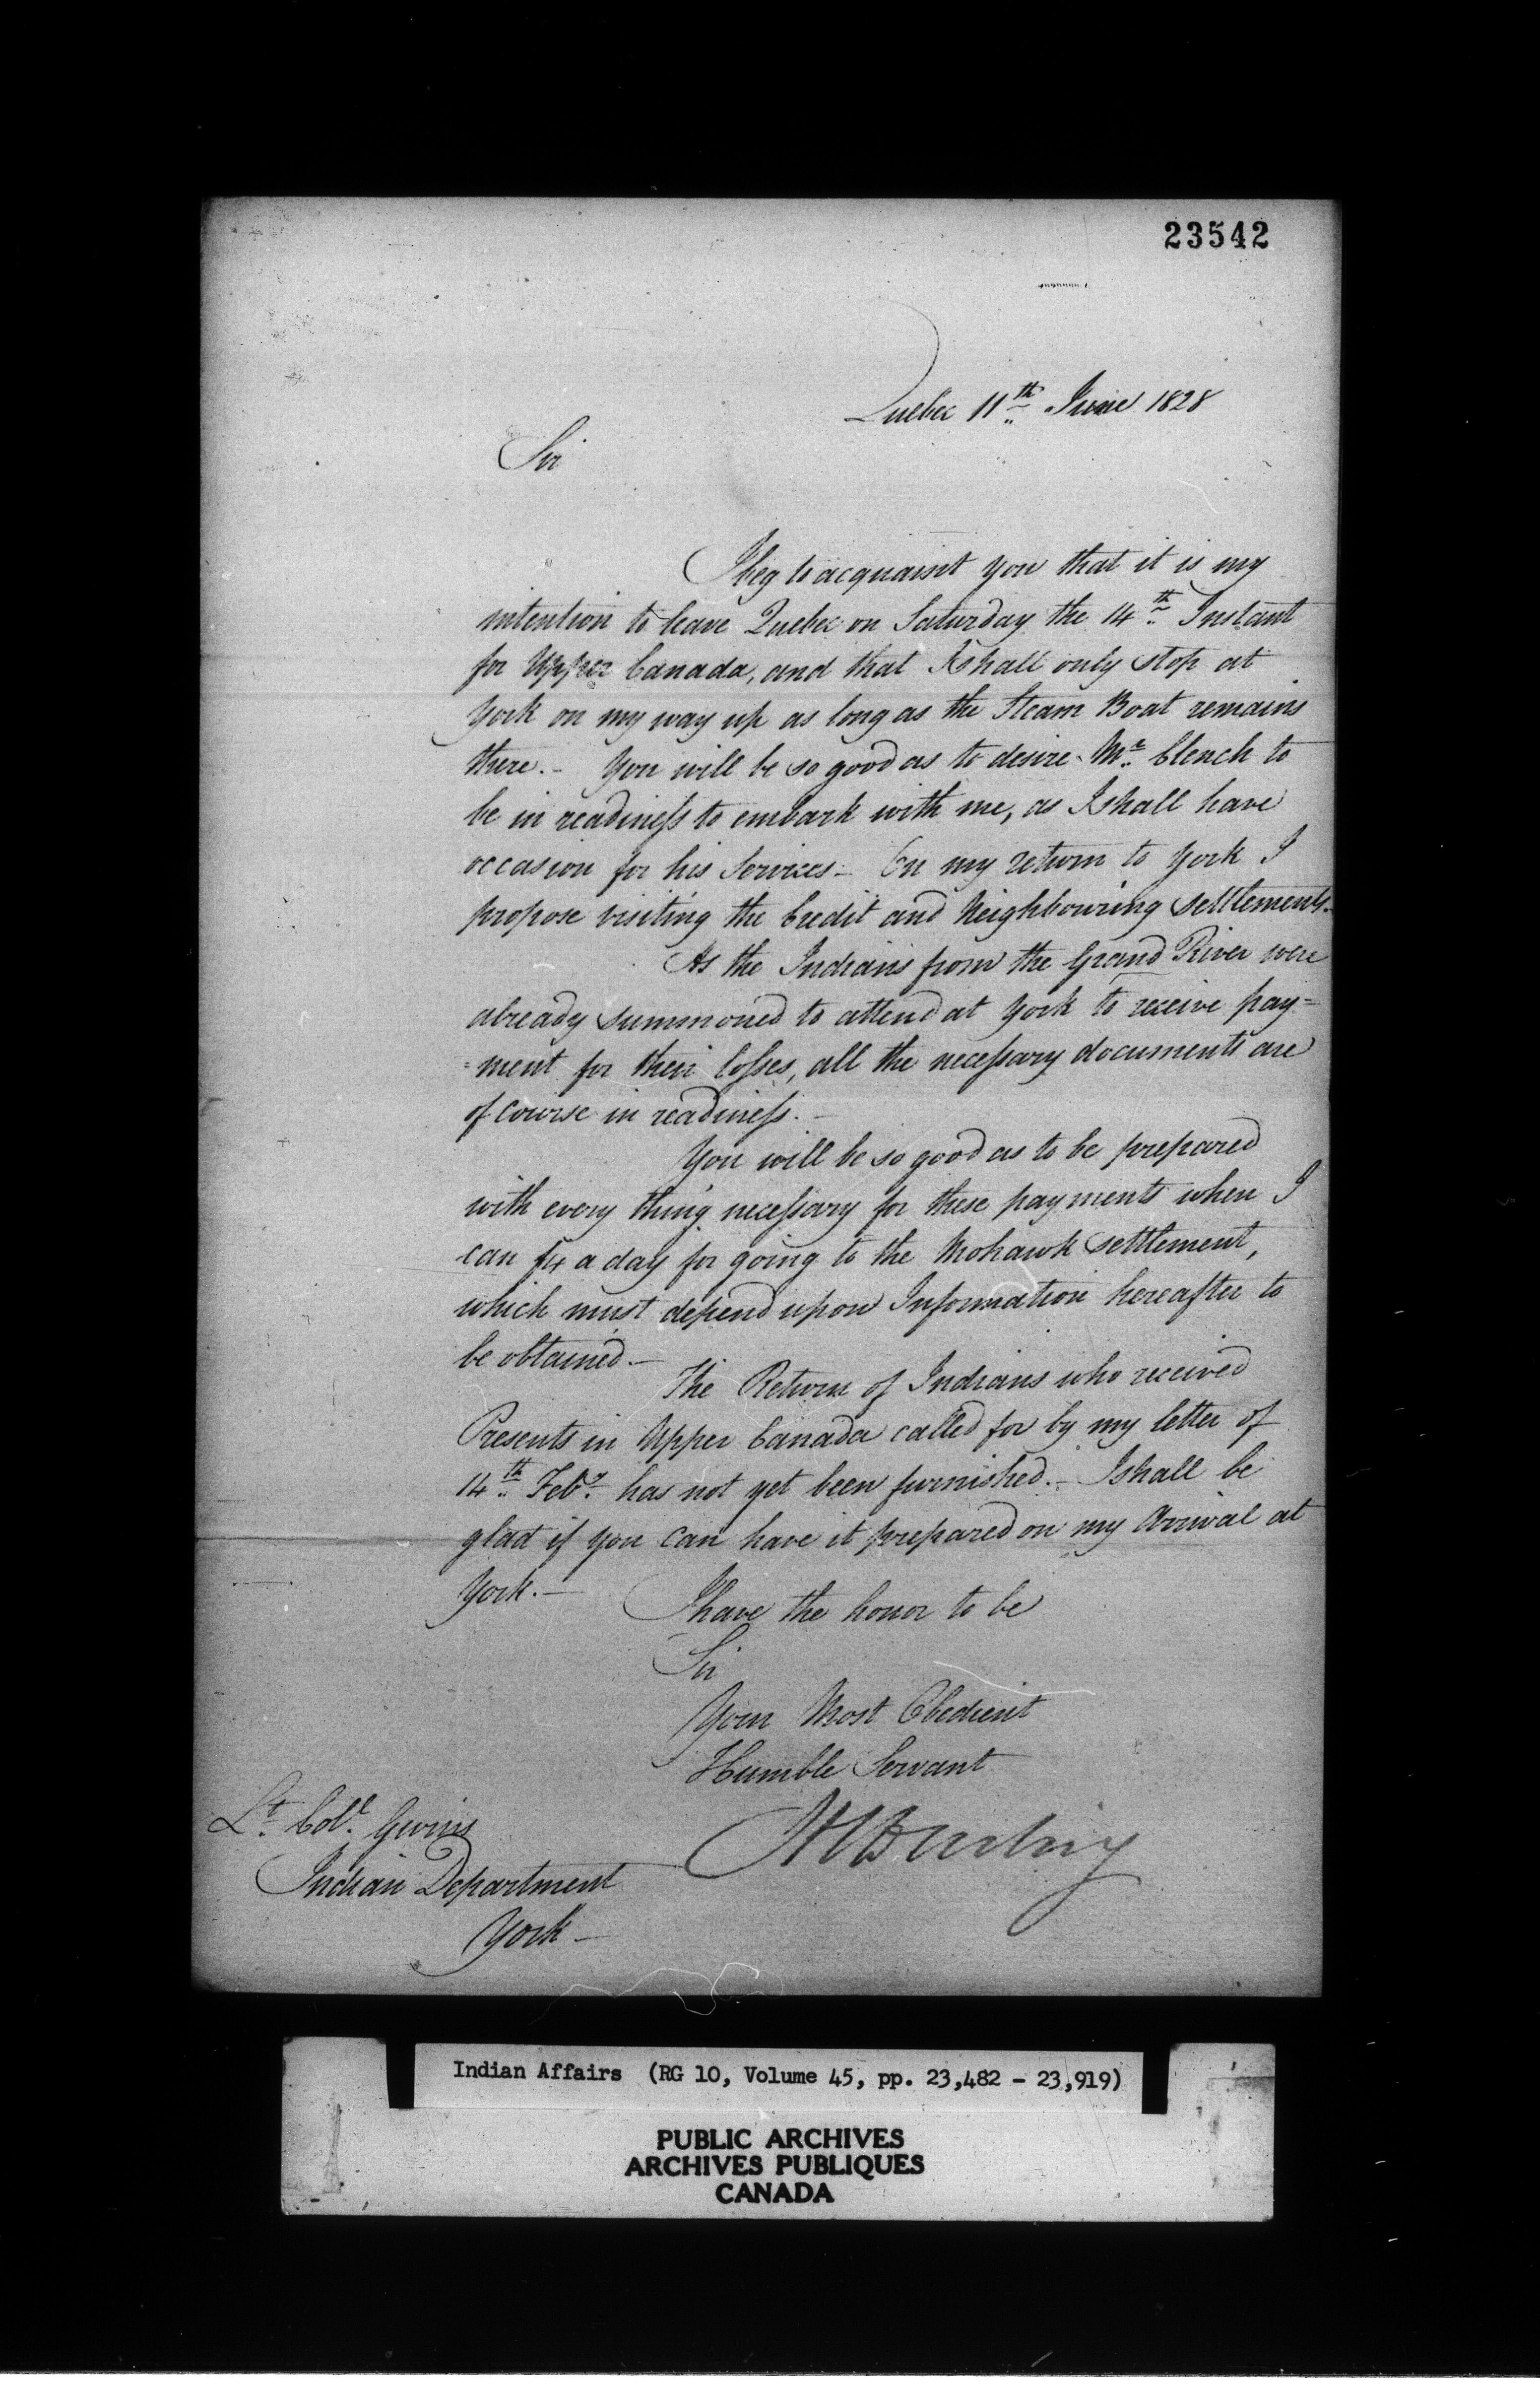 23542
Quebec 11th June 1828
Sir
I beg to acquaint you that it is my
intention to leave Quebec on Saturday the 14th Instant
for Upper Canada, and that I shall only stop at
York on my way up as long as the Steam Boat remains
there. - You will be so good as to desire Mr. Clench to
be in readiness to embark with me, as I shall have
occasion for his Services - On my return to York I
propose visiting the Credit and Neighbouring Settlements.
As the Indians from the Grand River were
already summoned to attend at York to receive pay=
=ment for their losses, all the necessary documents are
of course in readiness. -
You will be so good as to be prepared
with every thing necessary for these payments when I
can fix a day for going to the Mohawk Settlement,
which must depend upon Information hereafter to
be obtained. -
The Return of Indians who received
Presents in Upper Canada called for by my letter of
14th Feby. has not yet been furnished. - I shall be
glad if you can have it prepared on my Arrival at
York. -
I have the honor to be
Sir
Your Most Obedient
Humble Servant
HCDarling
Lt. Coll. Givins
Indian Department
York -
Indian Affairs (RG 10, Volume 45, pp. 23,482 - 23,919)
PUBLIC ARCHIVES
ARCHIVES PUBLIQUES
CANADA